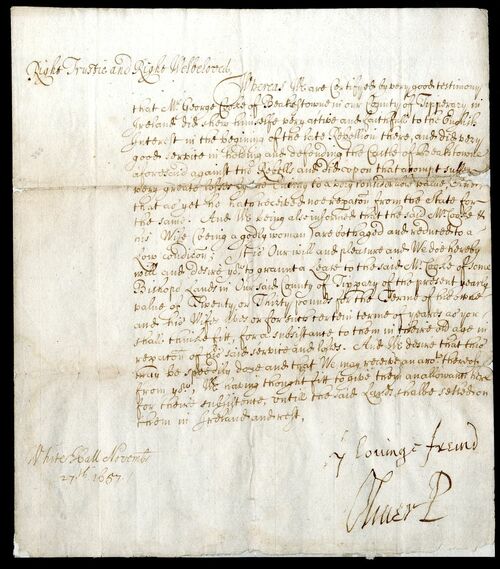 Right Trustie and Right Welbeloved,
Whereas We are Certifyed by very good testimony
that Mr George Cooke of Beakestowne in our County of Tipperary in
Ireland did shew himselfe very active and faithfull to the English
Interest in the begining of the late Rebellion there, and did very
good service in holding and defending the Castle of Beakstowne
aforesaid against the Rebells and did upon that accompt suffer
very great losses by the Enemy to a very considerable value, &
that as yet he hath received no reparacon from the State for
the same. And We being also informed that the said Mr Cooke &
his Wife (being a godly woman) are both aged and reduced to a
Low condicon; It is Our will and pleasure and We doe hereby
will and desire you to graunt a Lease to the said Mr Cooke of some
Bishops Lands in Our said County of Tipperary of the present yearly
value of Twenty or Thirty pounds for the Terme of his owne
and his Wifes lives or for such certein terme of yeares as you
shall thinke fitt, for a subsistance to them in their old age in
reparacon of his said service and losses. And We desire that this
may be speedily done and that We may receive an accot thereof
from you, We having thought fitt to give them an allowance here
for their subsistence, untill the said Lands shalbe setled on
them in Ireland and rest,
Yr Lovinge freind
Oliver P
White Hall Novembr
27th 1657